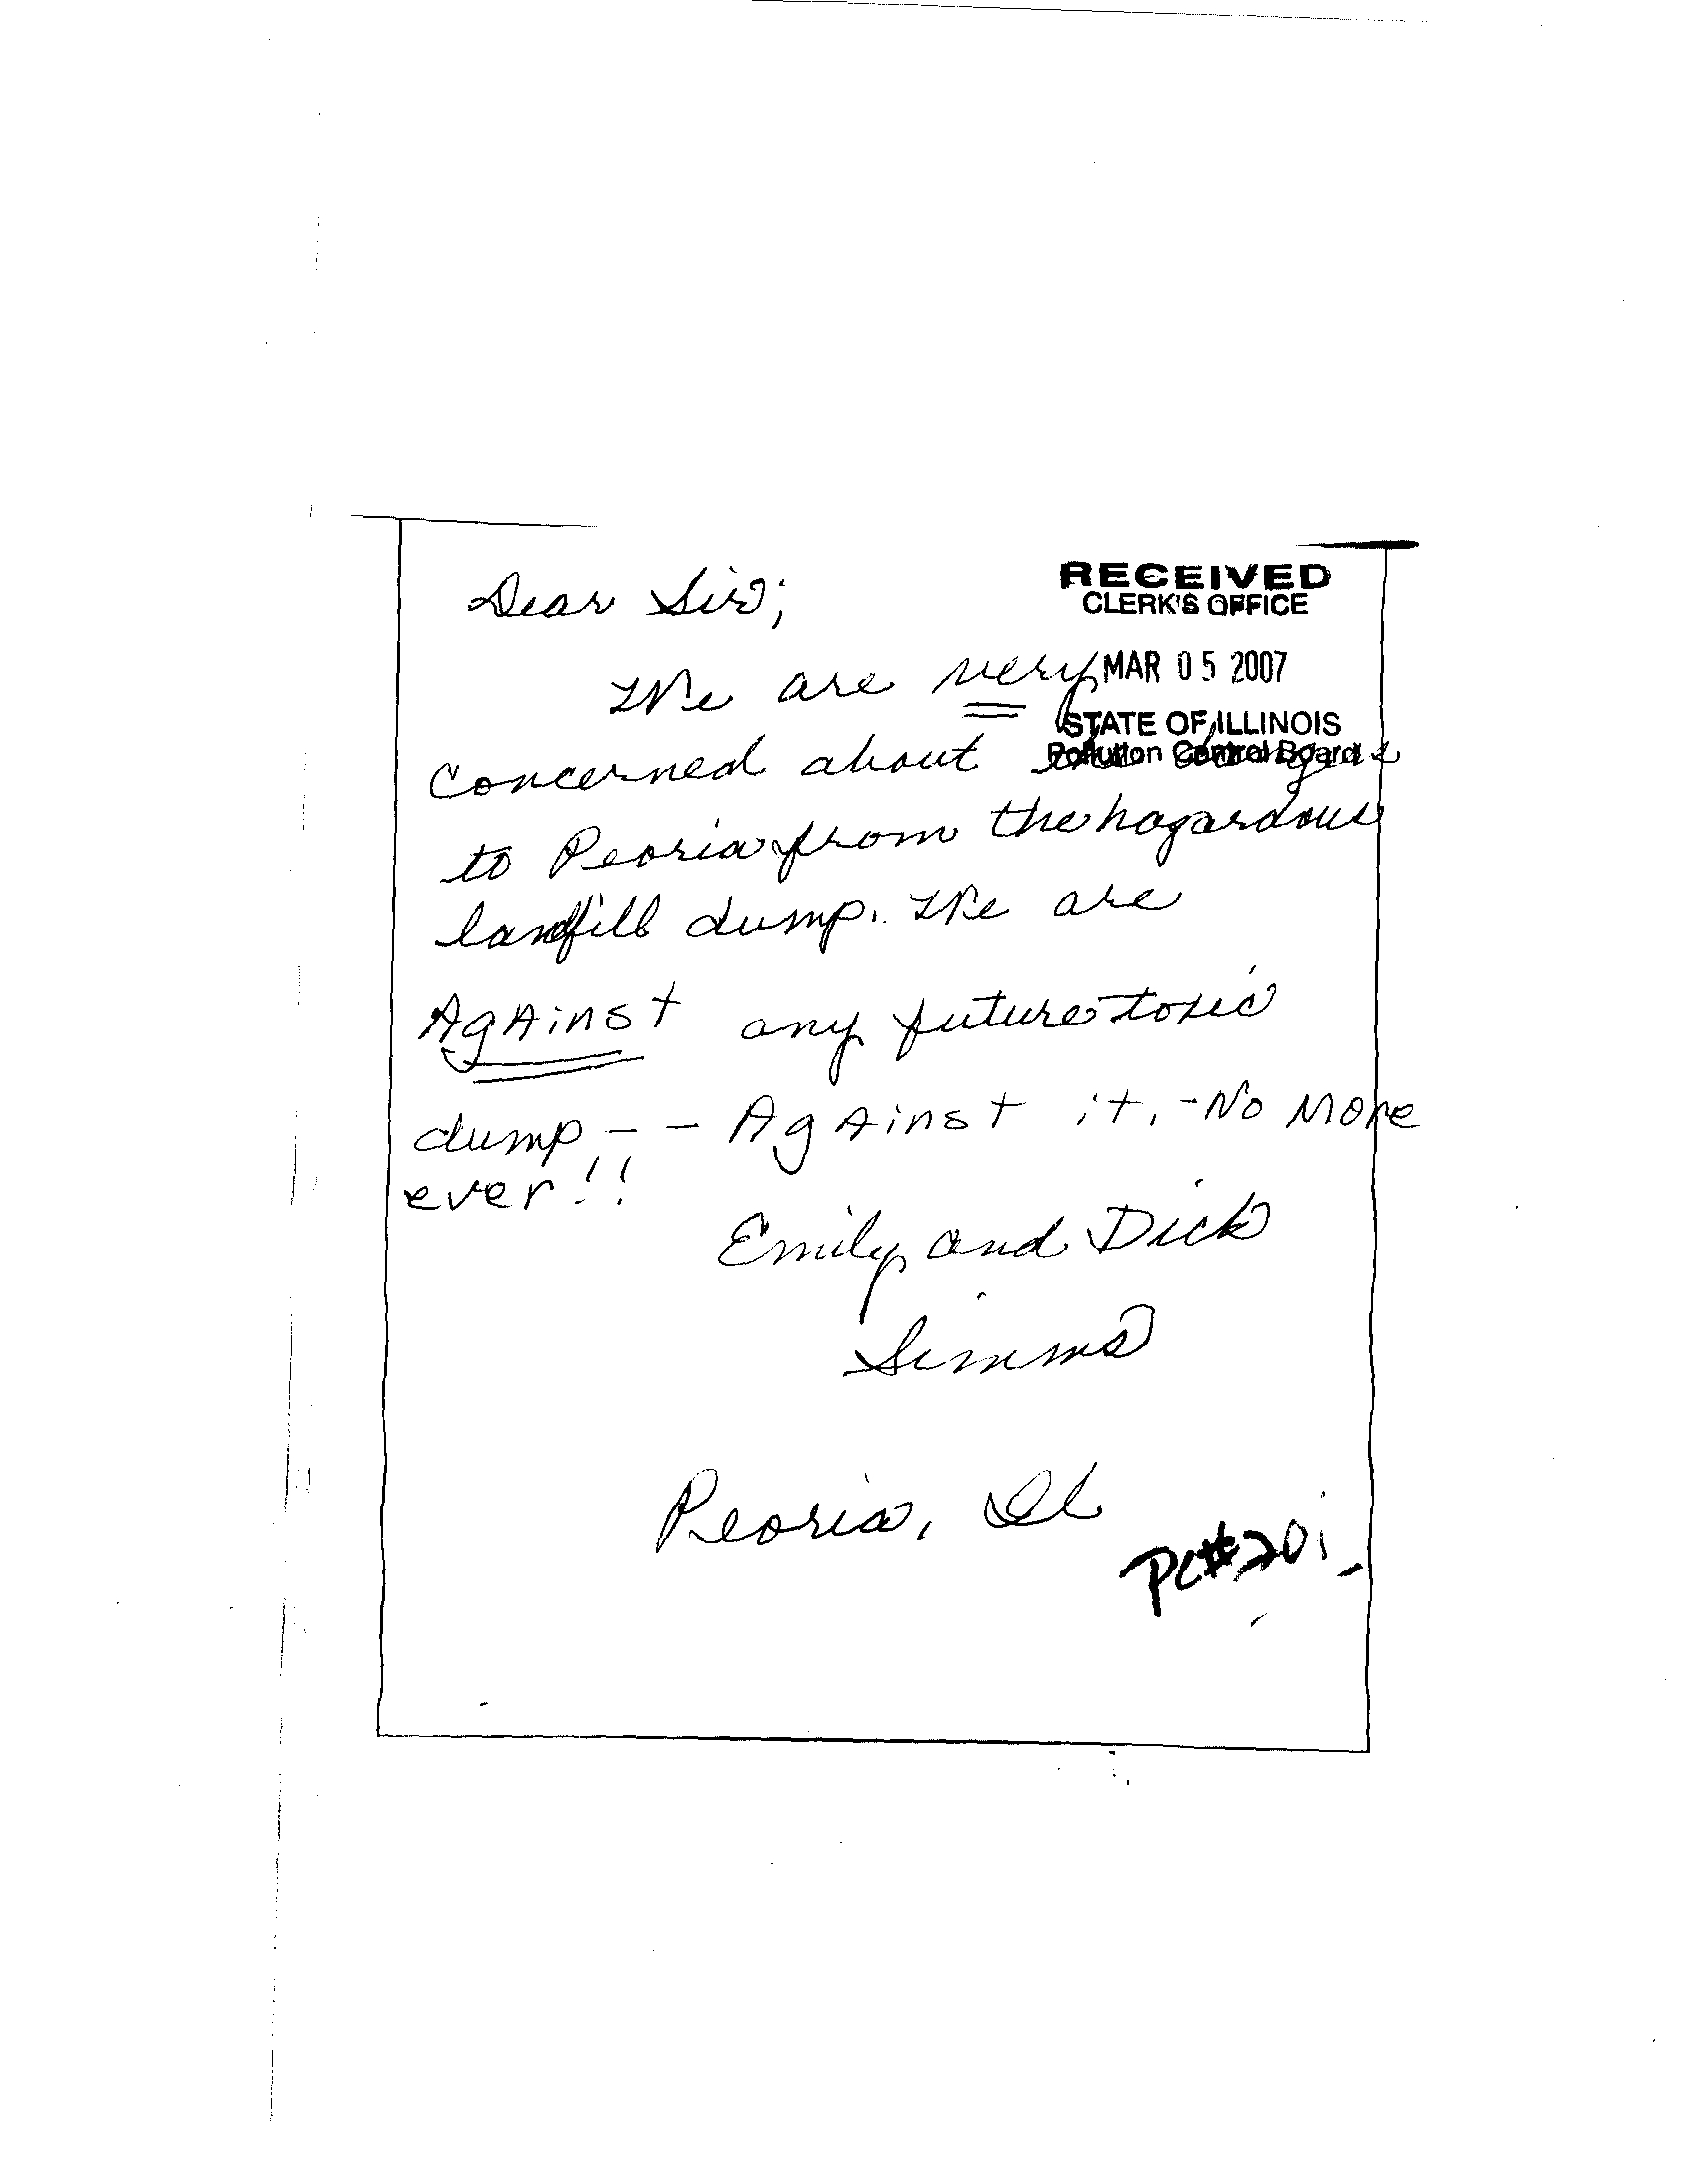 Dear Sir;
RECEIVED
CLERK'S OFFICE
We are very
MAR 05 2007
STATE OF ILLINOIS
Pollution Control Board
concerned about
to Peoria from the hazardous
landfill dump. We are
AgAinst any future toxic
dump - - AgAinst it. - No More
ever!!
Emily and Dick
Simms
Peoria, Il
PC#201